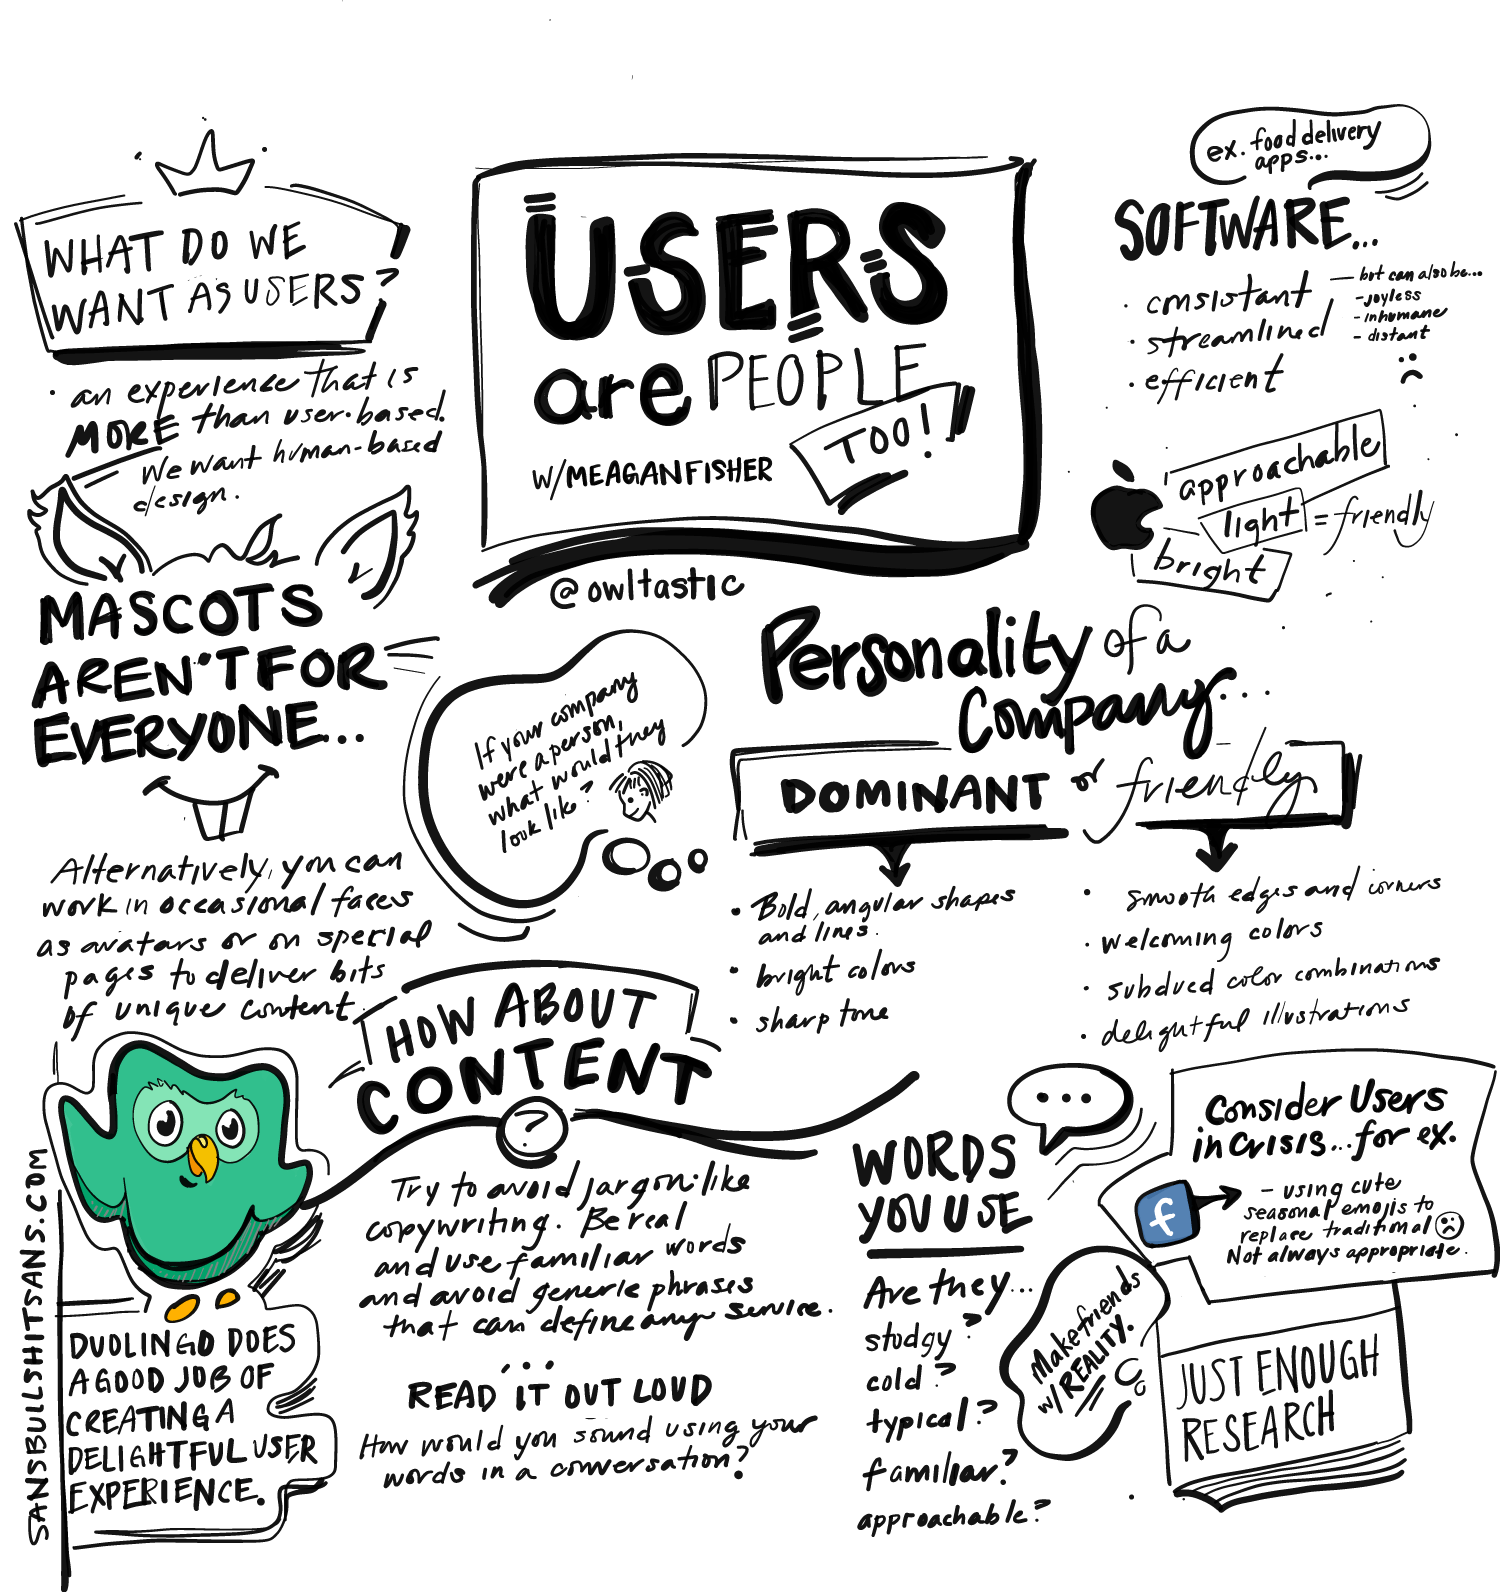 WHAT DO WE
WANT AS USERS?
• an experience that is
MORE than user-based.
We want human-based
design.
USERS
are PEOPLE
TOO!
W/MEAGAN FISHER
@owltastic
ex. food delivery
apps...
SOFTWARE...
• consistant
• streamlined
• efficient
— but can also be...
- joyless
- inhumane
- distant
approachable
light = friendly
bright
MASCOTS
AREN'T FOR
EVERYONE...
Alternatively, you can
work in occasional faces
as avatars or on special
pages to deliver bits
of unique content.
If your company
were a person,
what would they
look like?
Personality of a
Company...
DOMINANT or friendly
• Bold, angular shapes
and lines.
• bright colors
• sharp tone
• smooth edges and corners
• welcoming colors
• subdued color combinations
• delightful illustrations
HOW ABOUT
CONTENT
?
Try to avoid jargon-like
copywriting. Be real
and use familiar words
and avoid generic phrases
that can define any service.
READ IT OUT LOUD
How would you sound using your
words in a conversation?
DUOLINGO DOES
A GOOD JOB OF
CREATING A
DELIGHTFUL USER
EXPERIENCE.
SANSBULLSHITSANS.COM
WORDS
YOU USE
Are they...
stodgy?
cold?
typical?
familiar?
approachable?
Consider Users
in crisis... for ex.
f
- using cute
seasonal emojis to
replace traditional
Not always appropriate.
Make friends
w/ REALITY.
JUST ENOUGH
RESEARCH